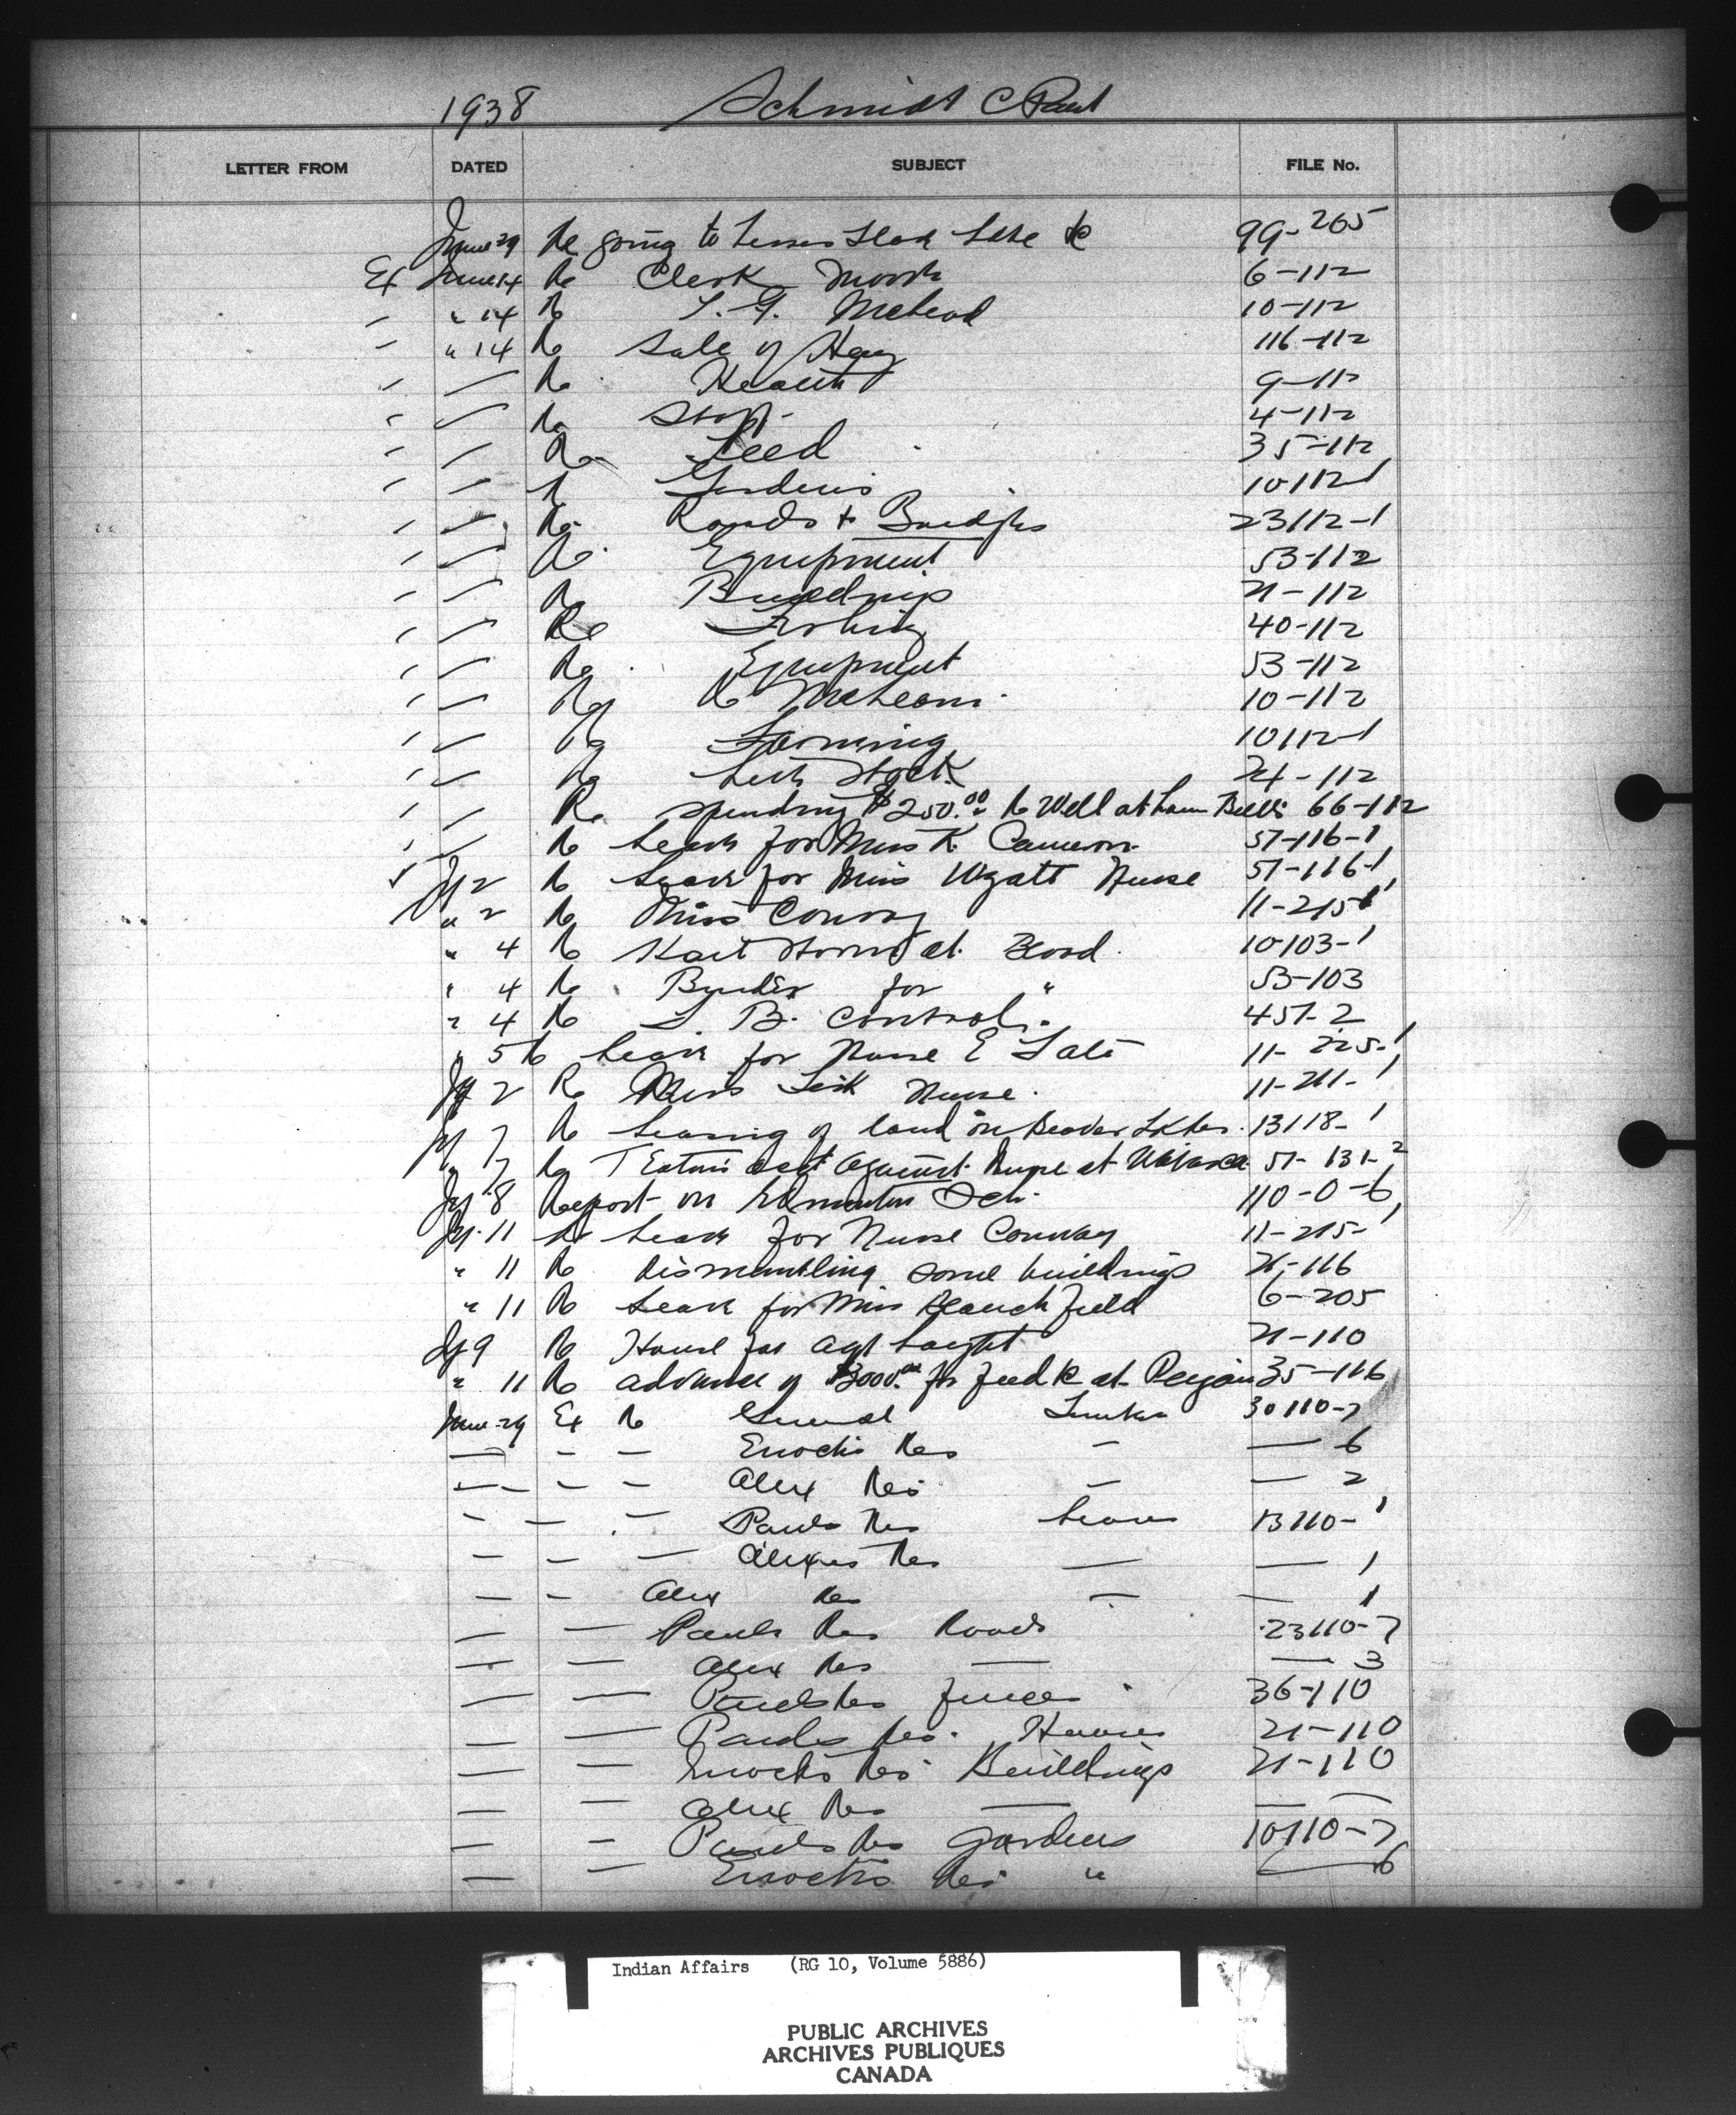 1938 Schmidt C Paul
LETTER FROM DATED SUBJECT FILE No.
June 29 Re going to Lesser Slave Lake &c 99-265
Ex June 14 Re Clerk 6-112
" 14 Re McLeod 10-112
" 14 Re Sale of Hay 116-112
Re Health 9-112
Re Staff 4-112
Re Seed 35-112
Re Gardens 10112-1
Re Roads + Bridges 23112-1
Re Equipment 53-112
Re Buildings 21-112
Re Fishing 40-112
Re Equipment 53-112
Re 10-112
Re Farming 10112-1
Re Live Stock 24-112
Re spending $250.00 Re Well at 66-112
Re Leave for Miss K Cameron 57-116-1
Jy 2 Re Leave for Miss Wyatt Nurse 57-116-1
" 2 Re Miss Conway 11-215-1
" 4 Re at Blood 10103-1
" 4 Re Binder for " 53-103
" 4 Re T. B. Control 457-2
" 5 Re Leave for Nurse E 11-225-1
Jy 2 Re Miss Nurse 11-211-1
Jy 7 Re Leasing of land on Beaver Lk Res 13118-1
" 7 Re T Eaton's acct against Nurse at Wabasca 57-131-2
Jy 8 Report on Edmonton Sch 110-0-6
Jy 11 Re Leave for Nurse Conway 11-215-1
" 11 Re dismantling some buildings 21-116
" 11 Re Leave for Miss 6-205
Jy 9 Re House for agt bought 21-110
" 11 Re advance of $3000.00 for feed &c at Peigan 35-116
June 29 Ex Re General Timber 30110-7
— — — Enochs Res — — 6
— — — Alex Res — — 2
— — — Pauls Res Leases 13110-1
— — — Alexis Res — — 1
— — Alex Res — — 1
— — Pauls Res Roads 23110-7
— — Alex Res — — 3
— — Pauls Res fences 36-110
— — Pauls Res Houses 21-110
— — Enochs Res Buildings 21-110
— — Alex Res — — —
— — Pauls Res Gardens 10110-7
— — Enochs Res " — 6
Indian Affairs (RG 10, Volume 5886)
PUBLIC ARCHIVES
ARCHIVES PUBLIQUES
CANADA